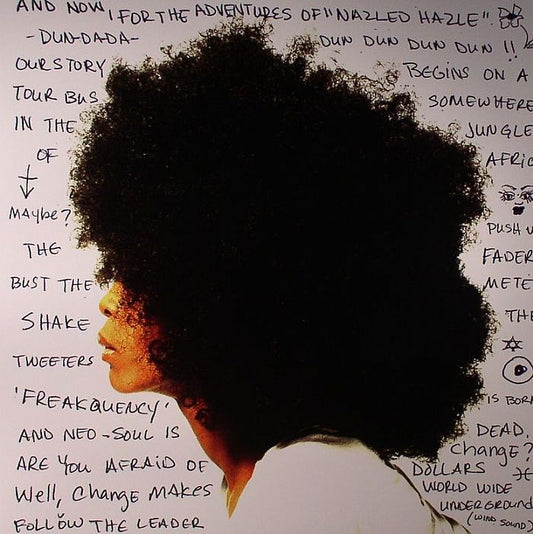 AND NOW, FOR THE ADVENTURES OF "NAZLED HAZLE".
-DUN-DADA- DUN DUN DUN DUN !!
OUR STORY BEGINS ON A
TOUR BUS SOMEWHERE
IN THE JUNGLE
OF AFRIC
MAYbe? PUSH U
THE FADER
BUST THE METE
SHAKE THE
TWEETERS
'FREAKQUENCY' IS BORN
AND NEO-SOUL IS DEAD.
ARE YOU AFRAID OF Change?
Well, Change MAKES DOLLARS
FOLLOW THE LEADER WORLD WIDE
UNDERGROUND
(WIND SOUND)